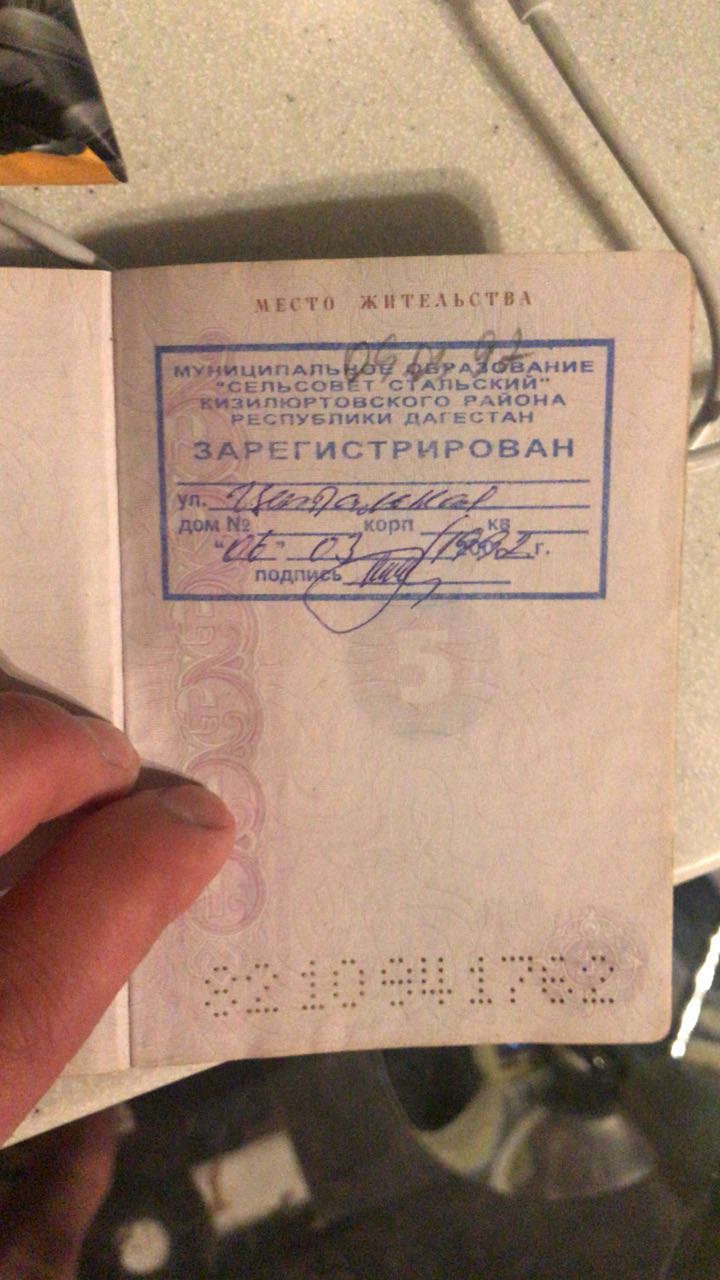 МЕСТО ЖИТЕЛЬСТВА
МУНИЦИПАЛЬНОЕ ОБРАЗОВАНИЕ
"СЕЛЬСОВЕТ СТАЛЬСКИЙ"
КИЗИЛЮРТОВСКОГО РАЙОНА
РЕСПУБЛИКИ ДАГЕСТАН
ЗАРЕГИСТРИРОВАН
ул. Центральная
дом № корп кв
"06" 03 1992 г.
подпись
5
8210941762